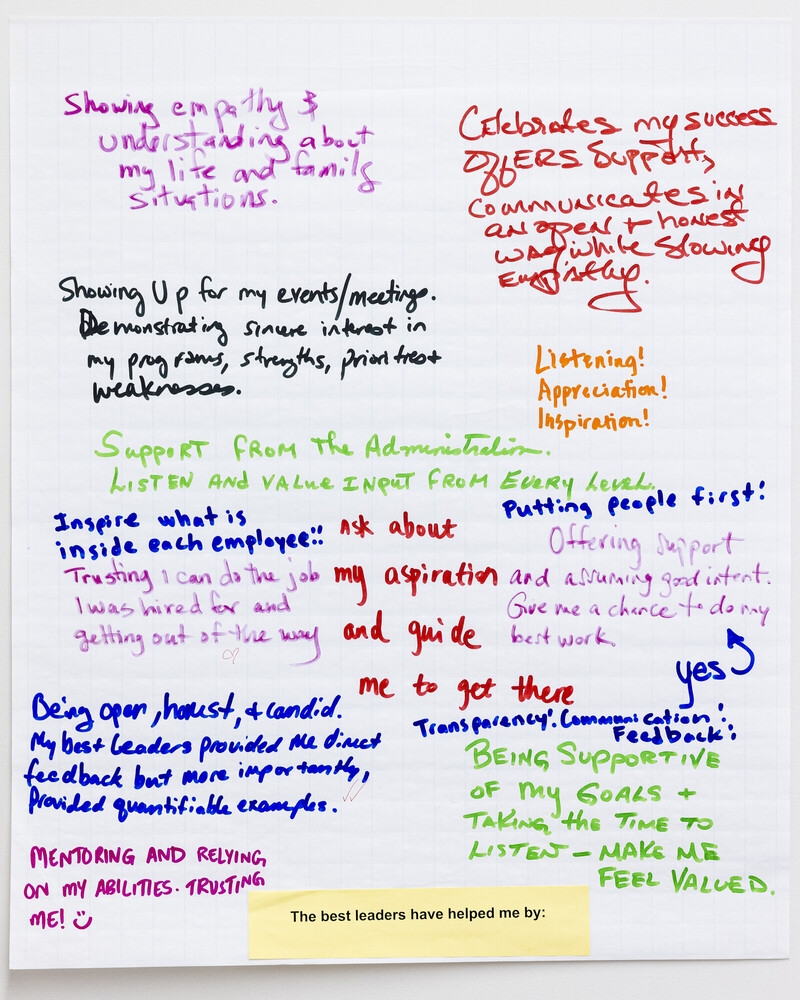 Showing empathy &
understanding about
my life and family
situations.
Celebrates my success
Offers Support,
Communicates in
an open + honest
way while Showing
Empathy.
Showing Up for my events/meetings.
Demonstrating sincere interest in
my programs, strengths, priorities +
weaknesses.
Listening!
Appreciation!
Inspiration!
Support from the Administration.
Listen and value input from every level.
Putting people first!
Inspire what is
inside each employee!!
Ask about
my aspiration
and guide
me to get there
Offering support
and assuming good intent.
Give me a chance to do my
best work.
yes
Trusting I can do the job
I was hired for and
getting out of the way
Being open, honest, & candid.
My best leaders provided me direct
feedback but more importantly,
Provided quantifiable examples.
Transparency! Communication!
Feedback!
Being Supportive
of my goals +
taking the time to
listen – make me
feel valued.
Mentoring and relying
on my abilities. Trusting
me!
The best leaders have helped me by: